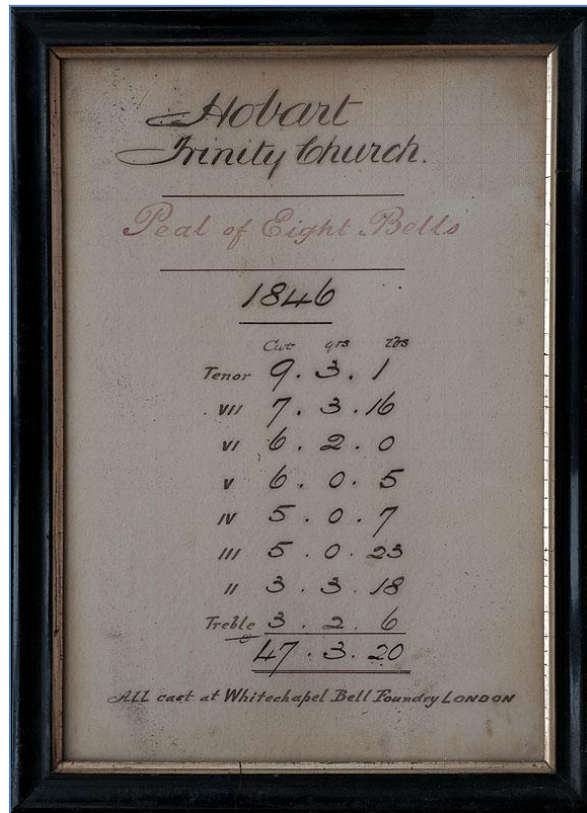 Hobart
Trinity Church.
Peal of Eight Bells
1846
Cwt qrs lbs
Tenor 9 . 3 . 1
VII 7 . 3 . 16
VI 6 . 2 . 0
V 6 . 0 . 5
IV 5 . 0 . 7
III 5 . 0 . 23
II 3 . 3 . 18
Treble 3 . 2 . 6
47 . 3 . 20
All cast at Whitechapel Bell Foundry LONDON